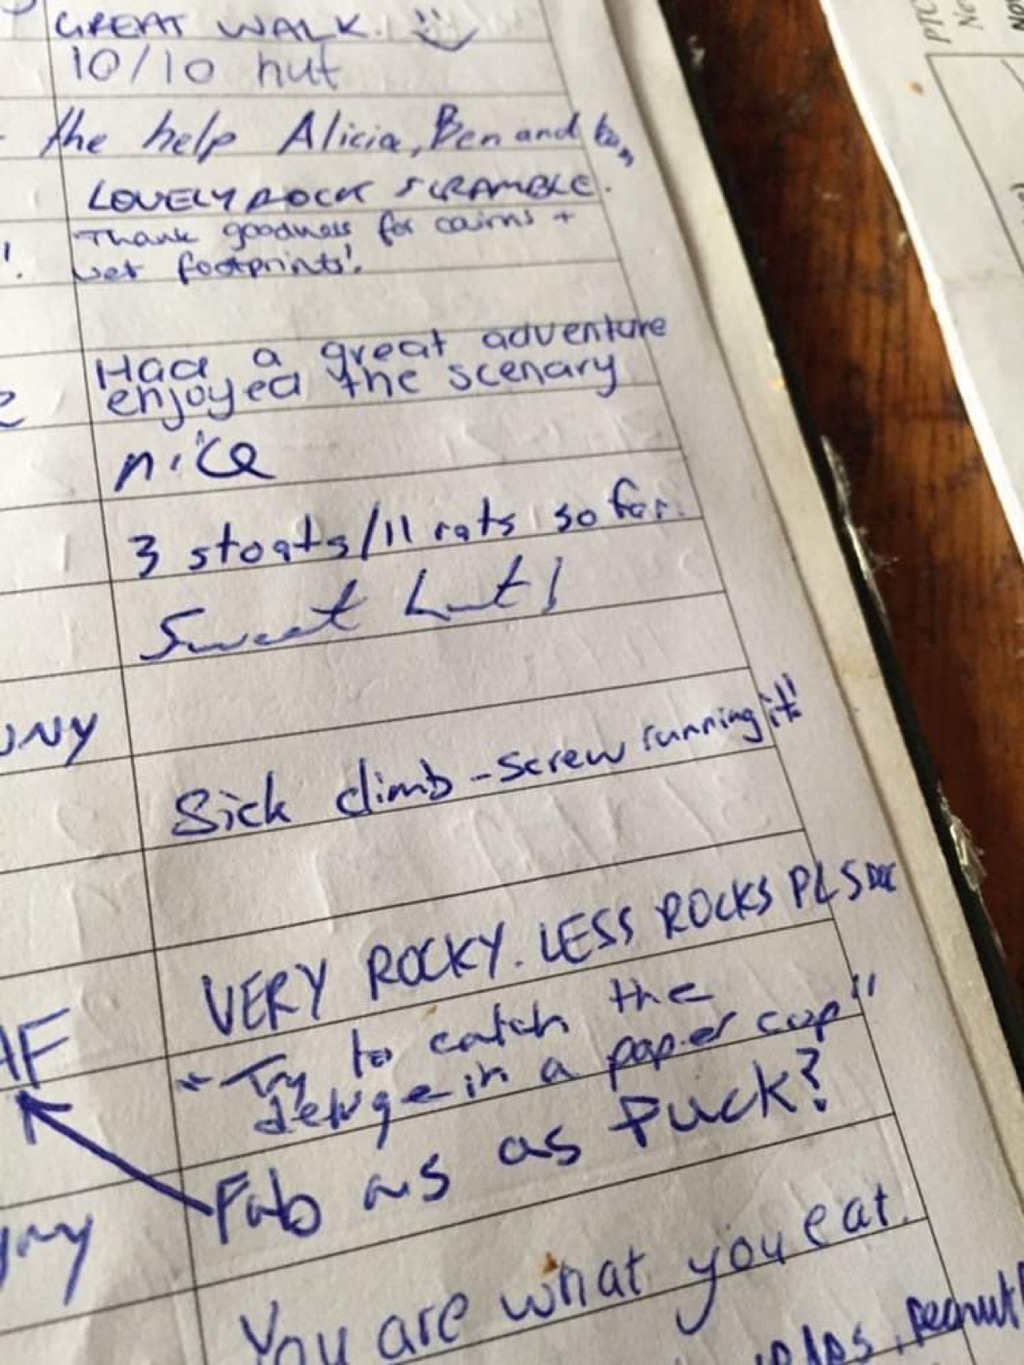 GREAT WALK. :)
10/10 hut
the help Alicia, Ben and
LOVELY ROCK SCRAMBLE.
Thank goodness for cairns +
wet footprints!
Had a great adventure
enjoyed the scenary
nice
3 stoats/11 rats so far.
Sweet hut!
UNY
Sick climb - screw running it!
VERY ROCKY. LESS ROCKS PLS DOC
AF
"Try to catch the
deluge in a paper cup"
Fab as as Puck?
You are what you eat.
peanut
PTO